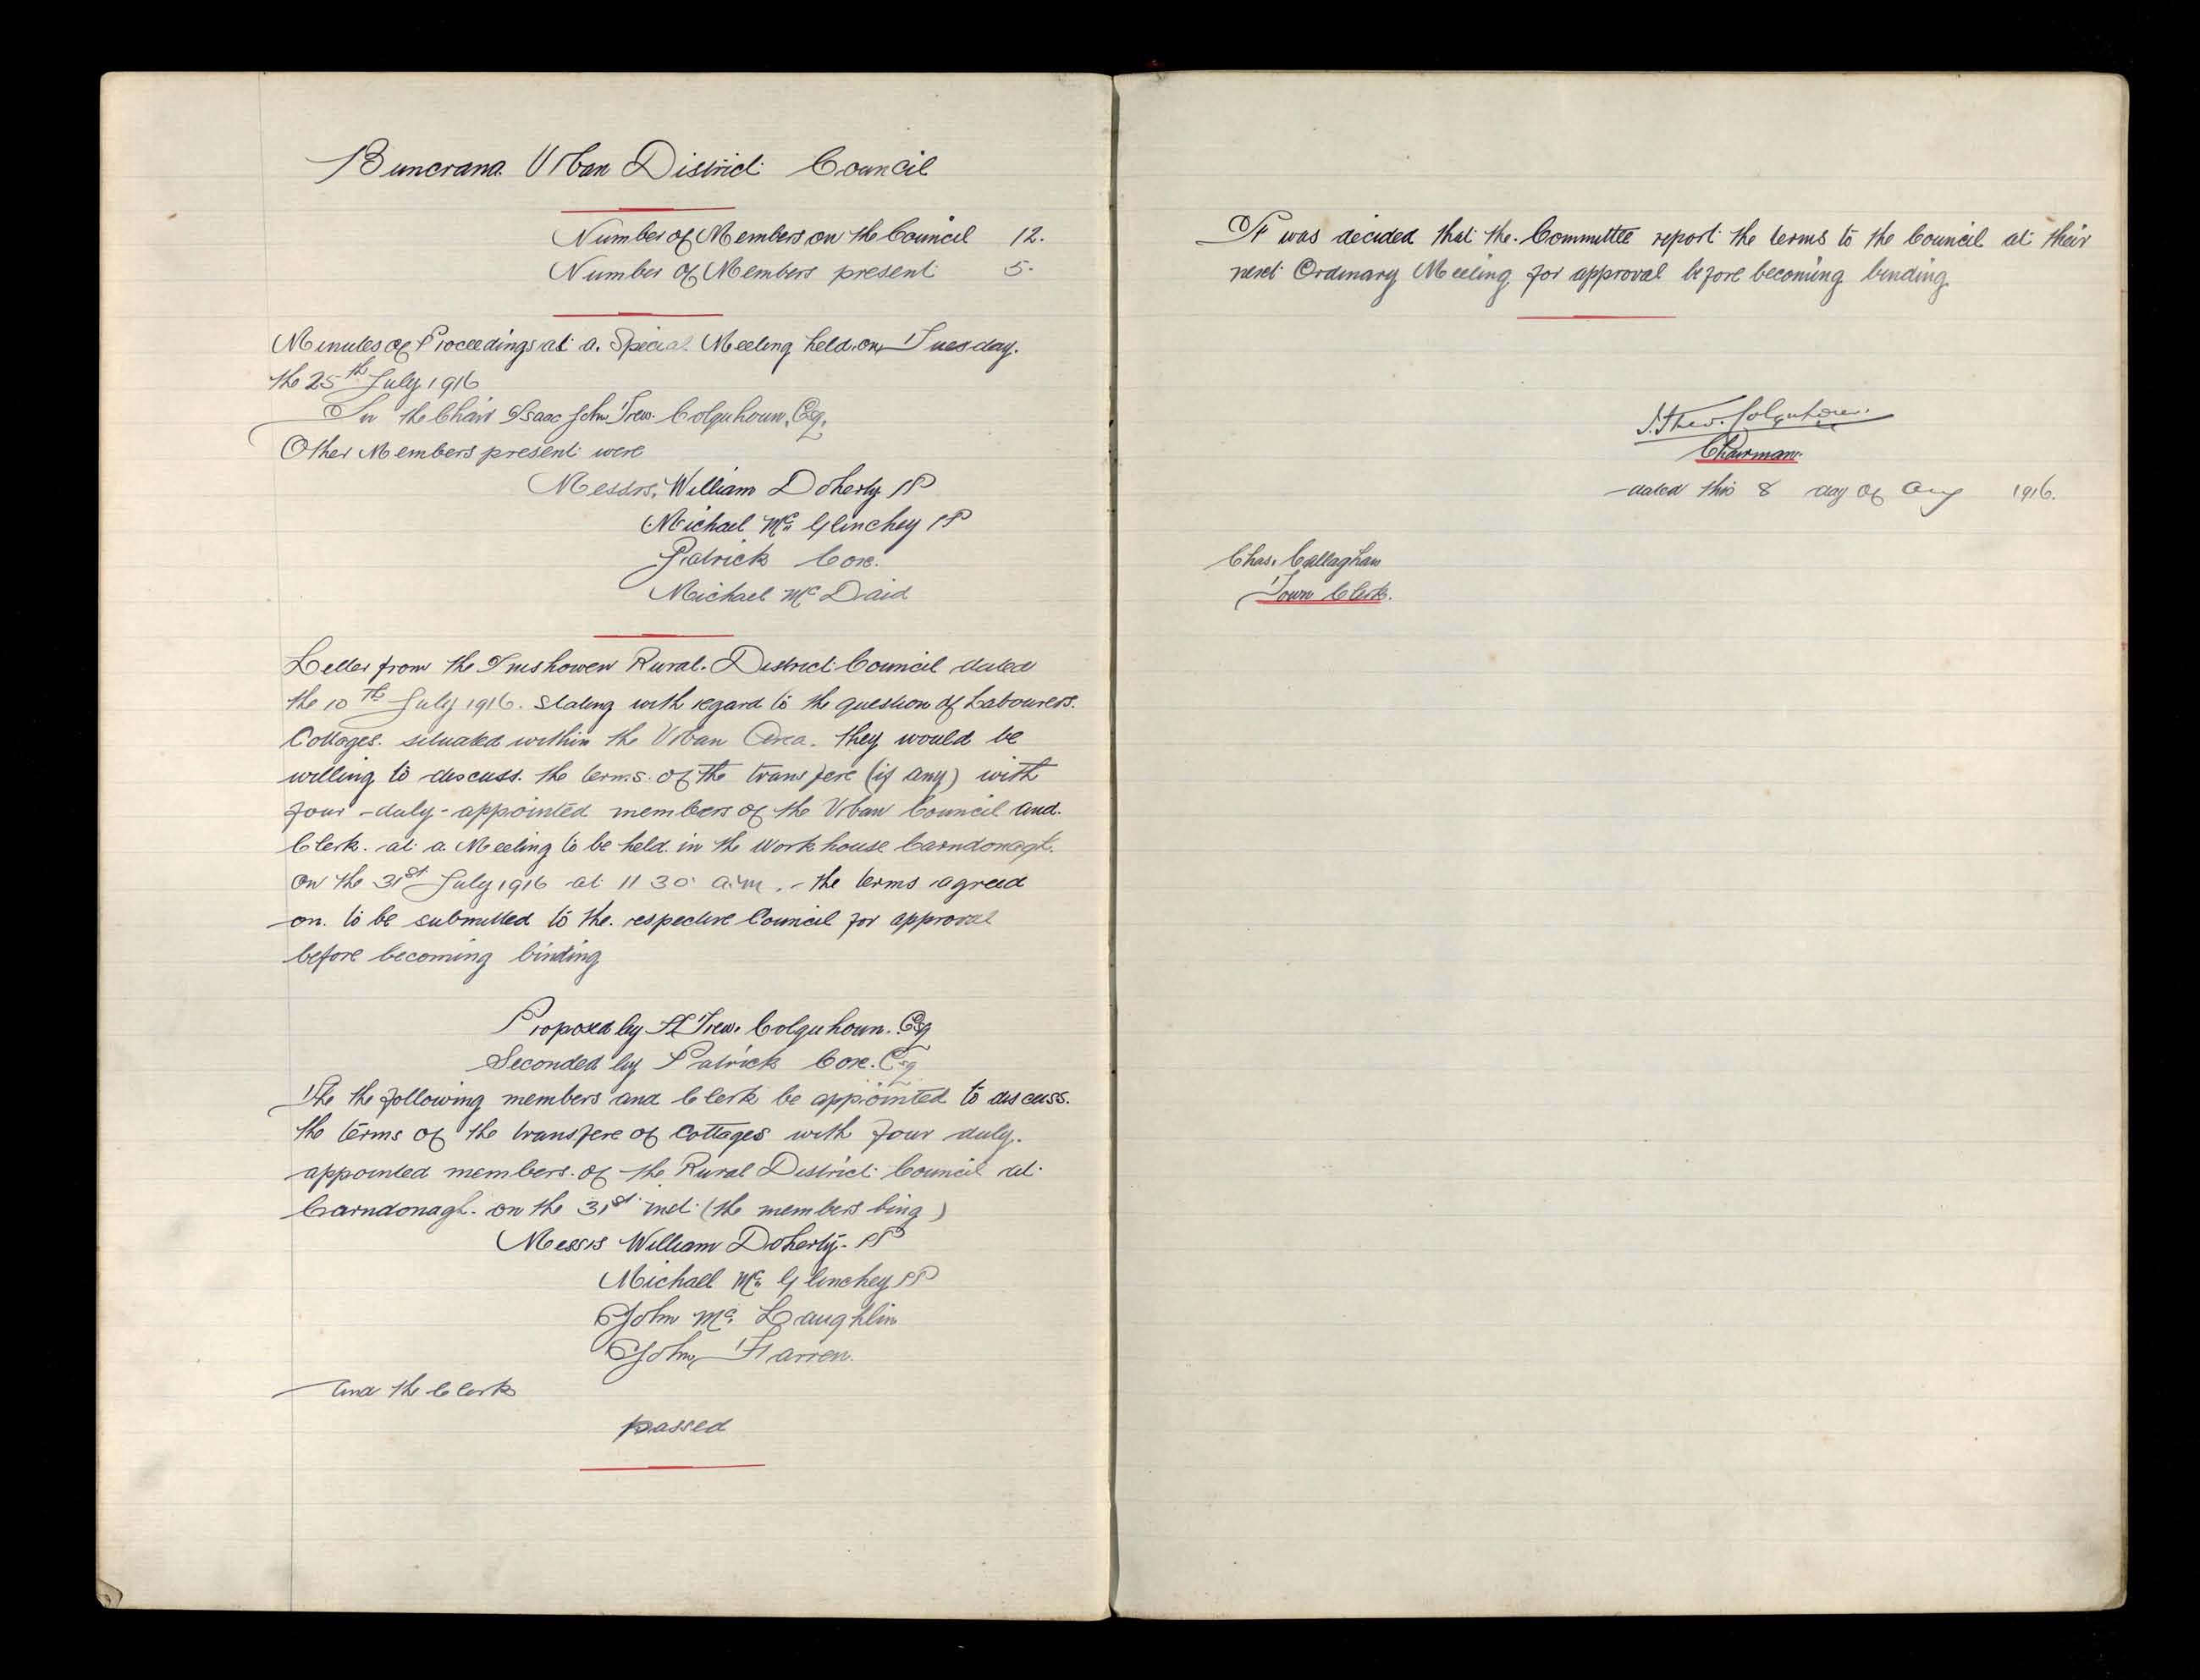 Buncrana Urban District Council
Number of Members on the Council 12.
Number of Members present 5.
Minutes of Proceedings at a Special Meeting held on Tuesday.
the 25th July 1916
In the Chair Isaac John Trew. Colquhoun, Esq.
Other Members present were
Messrs. William Doherty JP
Michael Mc Glinchey JP
Patrick Coxe.
Michael Mc Daid
Letter from the Inishowen Rural. District Council dated
the 10th July 1916. Stating with regard to the question of Labourers.
Cottages. situated within the Urban Area. they would be
willing to discuss. the terms. of the transfere (if any) with
four - duly - appointed members of the Urban Council and.
Clerk. at a Meeting to be held in the Work house Carndonagh.
on the 31st July 1916 at 11 30 a.m. - the terms agreed
on. to be submitted to the. respective Council for approval
before becoming binding
Proposed by Trew. Colquhoun. Esq
Seconded by Patrick Coxe. Esq
The the following members and Clerk be appointed to discuss.
the terms of the transfere of Cottages with four duly.
appointed members. of the Rural District Council at
Carndonagh. on the 31st inst (the members being)
Messrs William Doherty - JP
Michael Mc Glinchey JP
John Mc Laughlin
John Farren.
and the Clerk
passed
It was decided that the. Committee report the terms to the Council at their
next Ordinary Meeting for approval before becoming binding.
J. Trew. Colquhoun.
Chairman.
dated this 8 day of Aug 1916.
Chas. Callaghan
Town Clerk.